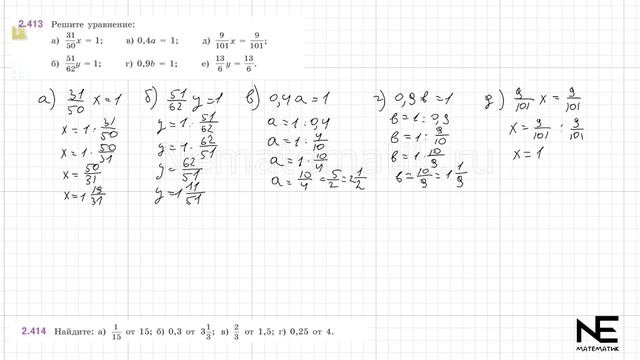 2.413 Решите уравнение:
а) 31/50 x = 1; в) 0,4a = 1; д) 9/101 x = 9/101;
б) 51/62 y = 1; г) 0,9b = 1; е) 13/6 y = 13/6.
а) 31/50 x = 1
x = 1 : 31/50
x = 1 · 50/31
x = 50/31
x = 1 19/31
б) 51/62 y = 1
y = 1 : 51/62
y = 1 · 62/51
y = 62/51
y = 1 11/51
в) 0,4a = 1
a = 1 : 0,4
a = 1 : 4/10
a = 1 · 10/4
a = 10/4 = 5/2 = 2 1/2
г) 0,9в = 1
в = 1 : 0,9
в = 1 : 9/10
в = 1 · 10/9
в = 10/9 = 1 1/9
д) 9/101 x = 9/101
x = 9/101 : 9/101
x = 1
2.414 Найдите: а) 1/15 от 15; б) 0,3 от 3 1/3; в) 2/3 от 1,5; г) 0,25 от 4.
NE
МАТЕМАТИК